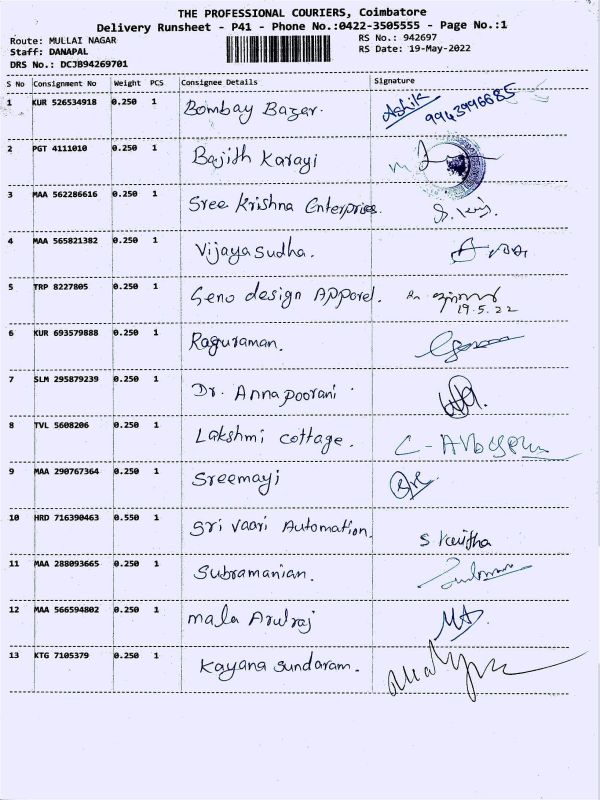 THE PROFESSIONAL COURIERS, Coimbatore
Delivery Runsheet - P41 - Phone No.:0422-3505555 - Page No.:1
Route: MULLAI NAGAR RS No.: 942697
Staff: DANAPAL RS Date: 19-May-2022
DRS No.: DCJB94269701
S No Consignment No Weight PCS Consignee Details Signature
1 KUR 526534918 0.250 1 Bombay Bazer. Ashik 9943996685
2 PGT 4111010 0.250 1 Bajith Karayi
3 MAA 562286616 0.250 1 Sree Krishna Enterprises.
4 MAA 565821382 0.250 1 Vijayasudha.
5 TRP 8227805 0.250 1 Geno design Apporel. 19.5.22
6 KUR 693579888 0.250 1 Raguraman.
7 SLM 295879239 0.250 1 Dr. Annapoorani
8 TVL 5608206 0.250 1 Lakshmi cottage.
9 MAA 290767364 0.250 1 Sreemayi
10 HRD 716390463 0.550 1 Sri vaari Automation. S Kavitha
11 MAA 288093665 0.250 1 Subramanian.
12 MAA 566594802 0.250 1 mala Arulraj
13 KTG 7105379 0.250 1 Kayana sundaram.